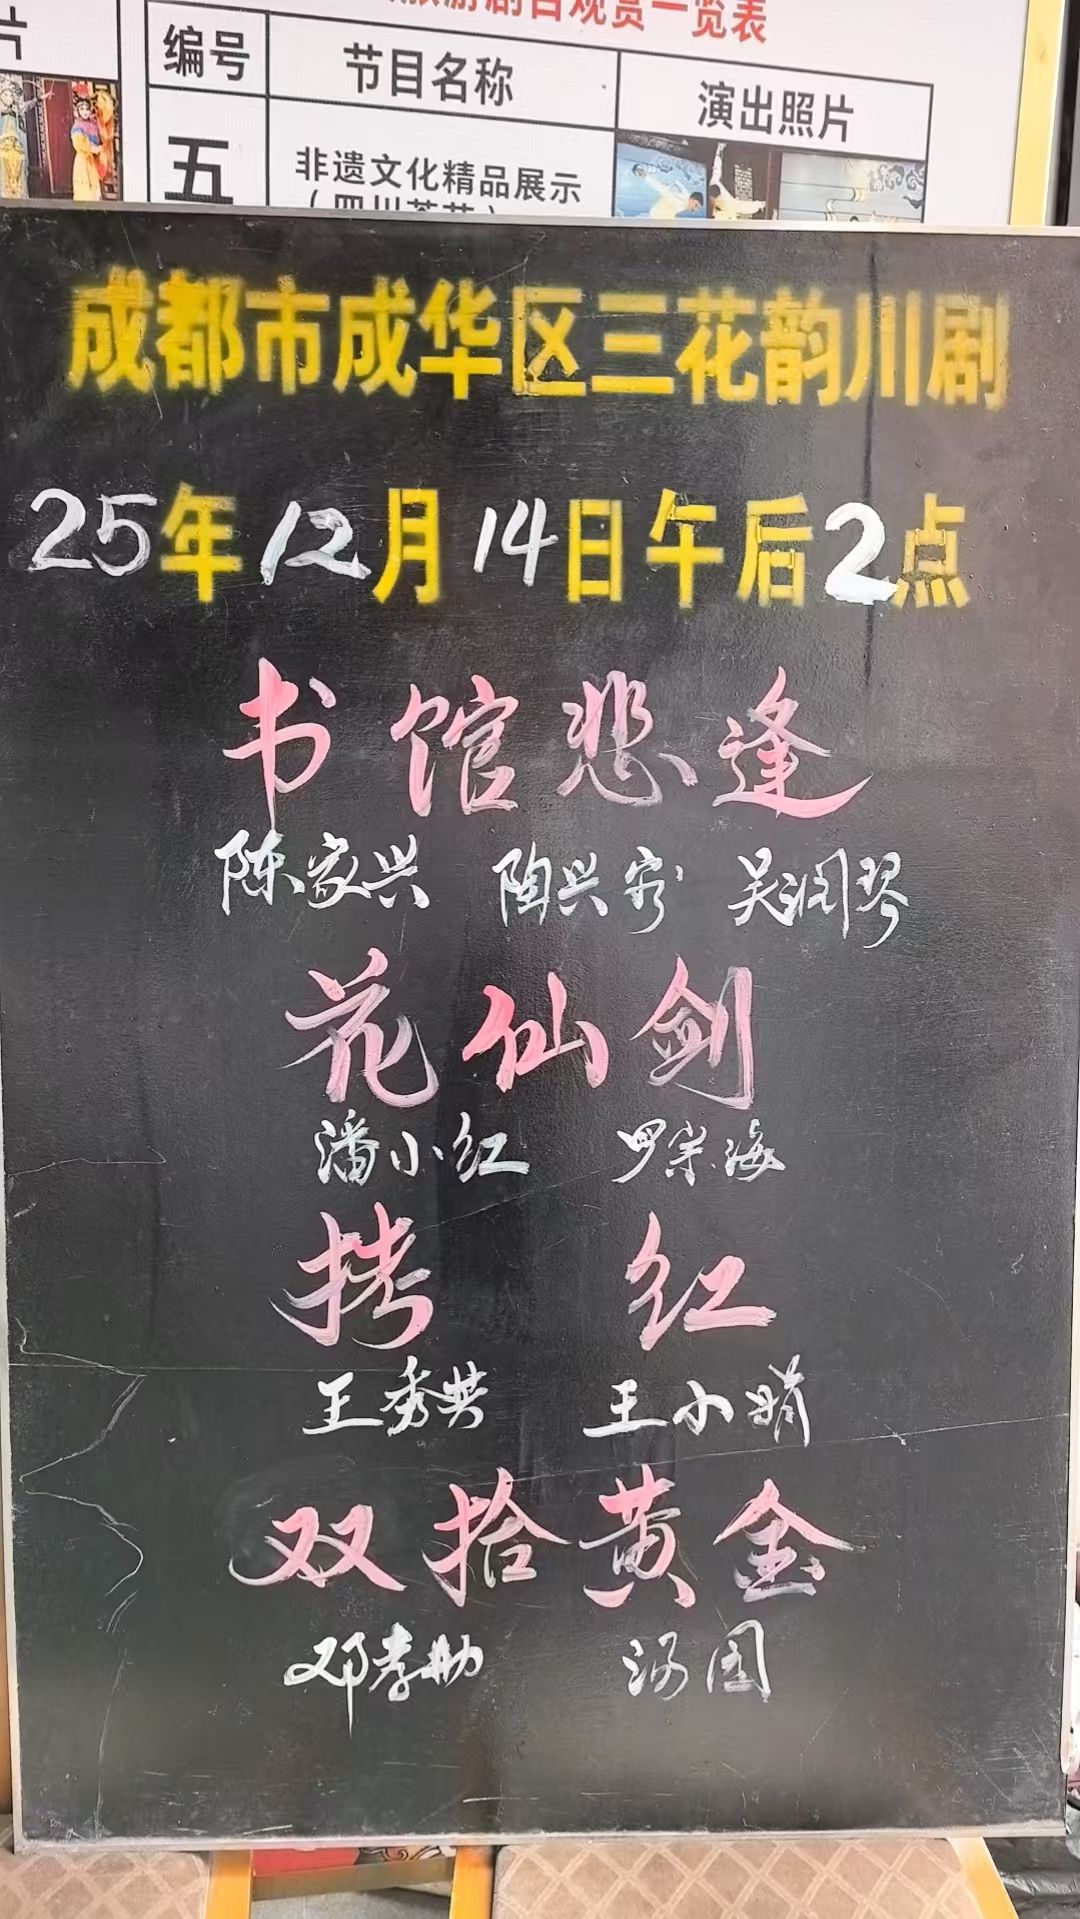 片
旅游剧目观赏一览表
编号 节目名称 演出照片
五 非遗文化精品展示
（四川茶艺）
成都市成华区三花韵川剧
25年12月14日午后2点
书馆悲逢
陈家兴 陶兴容 吴润琴
花仙剑
潘小红 罗崇海
拷红
王秀其 王小晴
双拾黄金
邓孝勋 汤国